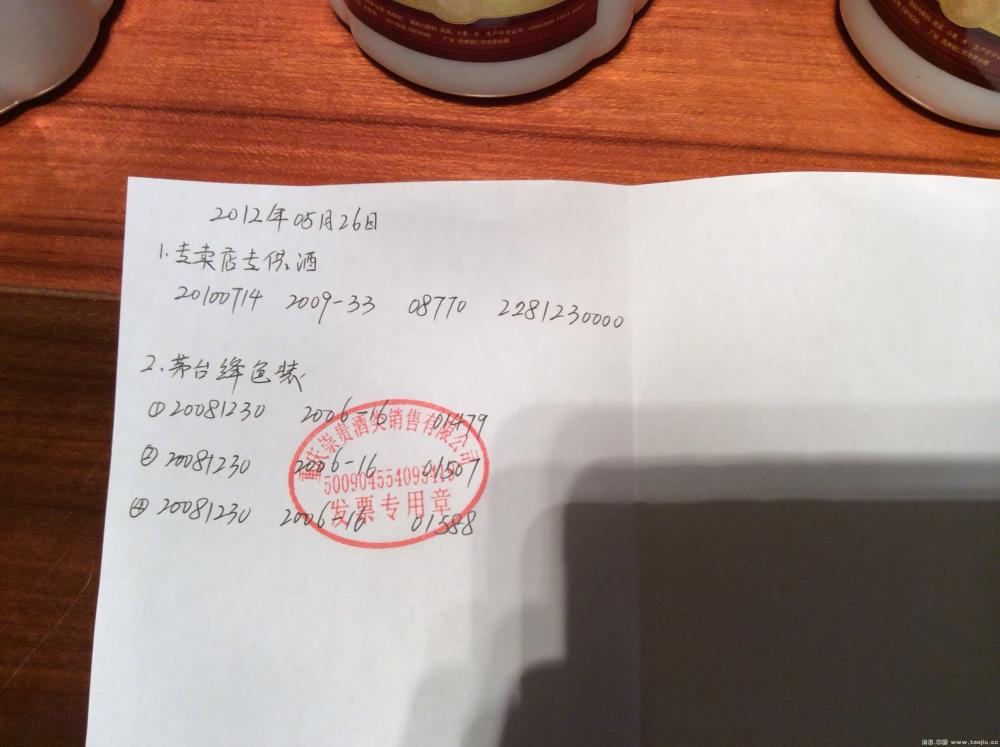 厂址 贵州省仁怀市茅台镇
2012年05月26日
1.专卖店专供酒
20100714 2009-33 08770 2281230000
2.茅台绛色装
①20081230 2006-16 01479
②20081230 2006-16 01507
④20081230 2006-16 01588
重庆崇贵酒类销售有限公司
发票专用章
www.taojiu.cc